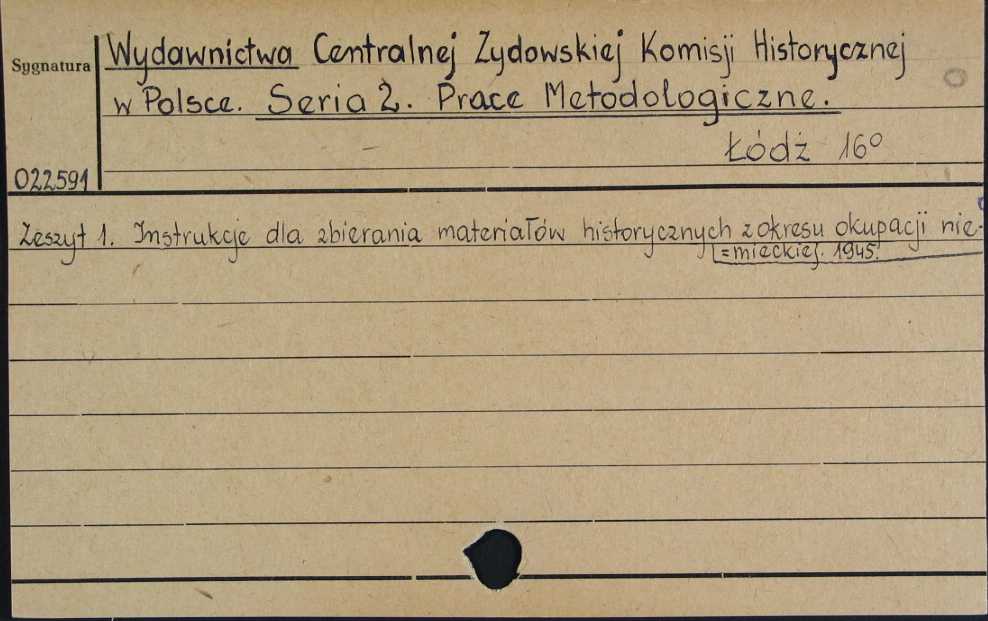 Wydawnictwa Centralnej Zydowskiej Komisji Historycznej
Sygnatura
w Polsce. Seria 2. Prace Metodologiczne.
Łódź 16°
022591
Zeszyt 1. Instrukcje dla zbierania materiałów historycznych z okresu okupacji nie-
=mieckiej. 1945.